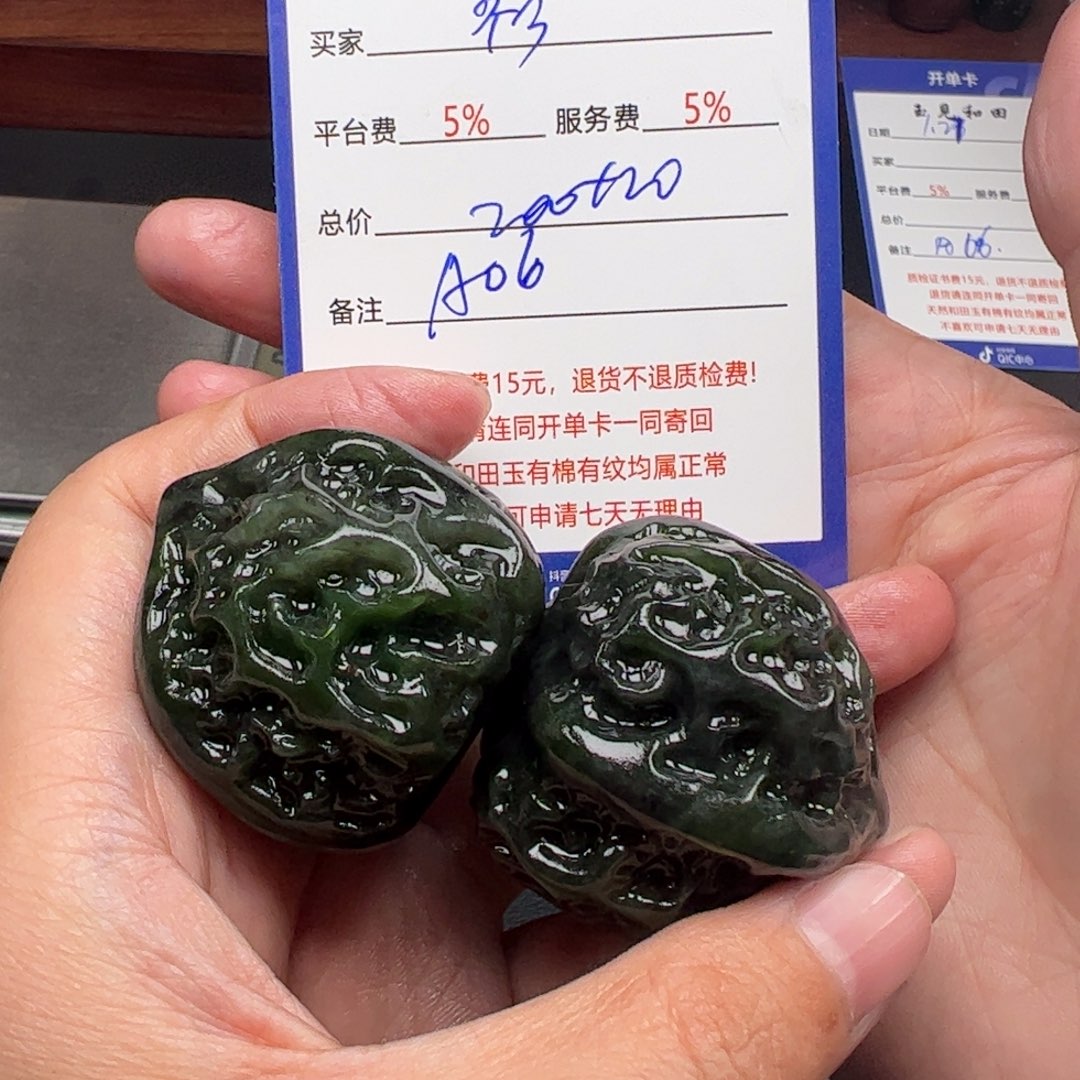 买家
平台费 5% 服务费 5%
总价 200+20
备注 A06
费15元，退货不退质检费!
请连同开单卡一同寄回
和田玉有棉有纹均属正常
可申请七天无理由
抖音
开单卡
玉见和田
日期
买家
平台费 5% 服务费
总价
备注 A06.
质检证书费15元，退货不退质检
退货请连同开单卡一同寄回
天然和田玉有棉有纹均属正常
不喜欢可申请七天无理由
QIC中心